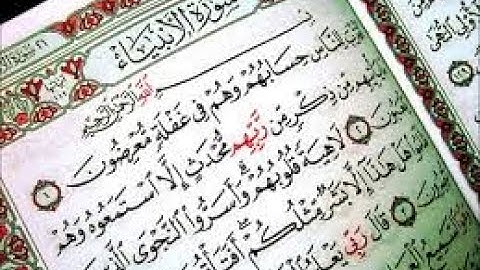 سُورَةُ الأَنبِيَاءِ
بِسْمِ اللَّهِ الرَّحْمَٰنِ الرَّحِيمِ
لِلنَّاسِ حِسَابُهُمْ وَهُمْ فِي غَفْلَةٍ مُّعْرِضُونَ ١
يَأْتِيهِم مِّن ذِكْرٍ مِّن رَّبِّهِم مُّحْدَثٍ إِلَّا ٱسْتَمَعُوهُ وَهُمْ
يَلْعَبُونَ ٢ لَاهِيَةً قُلُوبُهُمْ وَأَسَرُّوا۟ ٱلنَّجْوَى ٱلَّذِينَ
هَلْ هَٰذَآ إِلَّا بَشَرٌ مِّثْلُكُمْ أَفَتَأْتُونَ
٣ قَالَ رَبِّي يَعْلَمُ
ٱلسَّمِيعُ